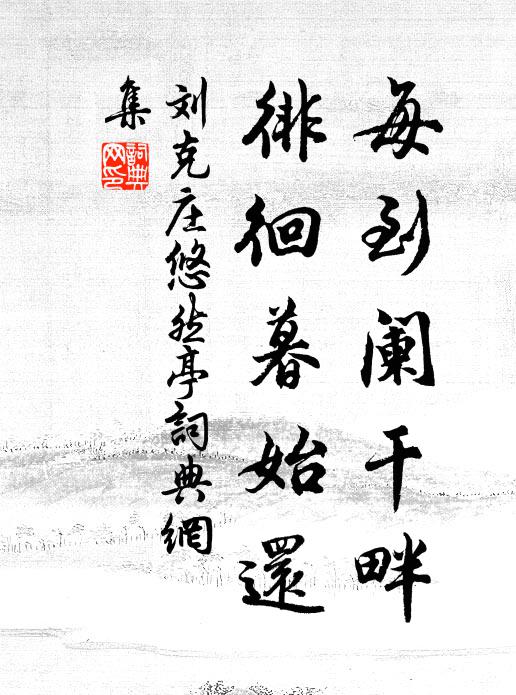 每到阑干畔
徘徊暮始還
刘克庄悠然亭詞典網
集
詞典
网印